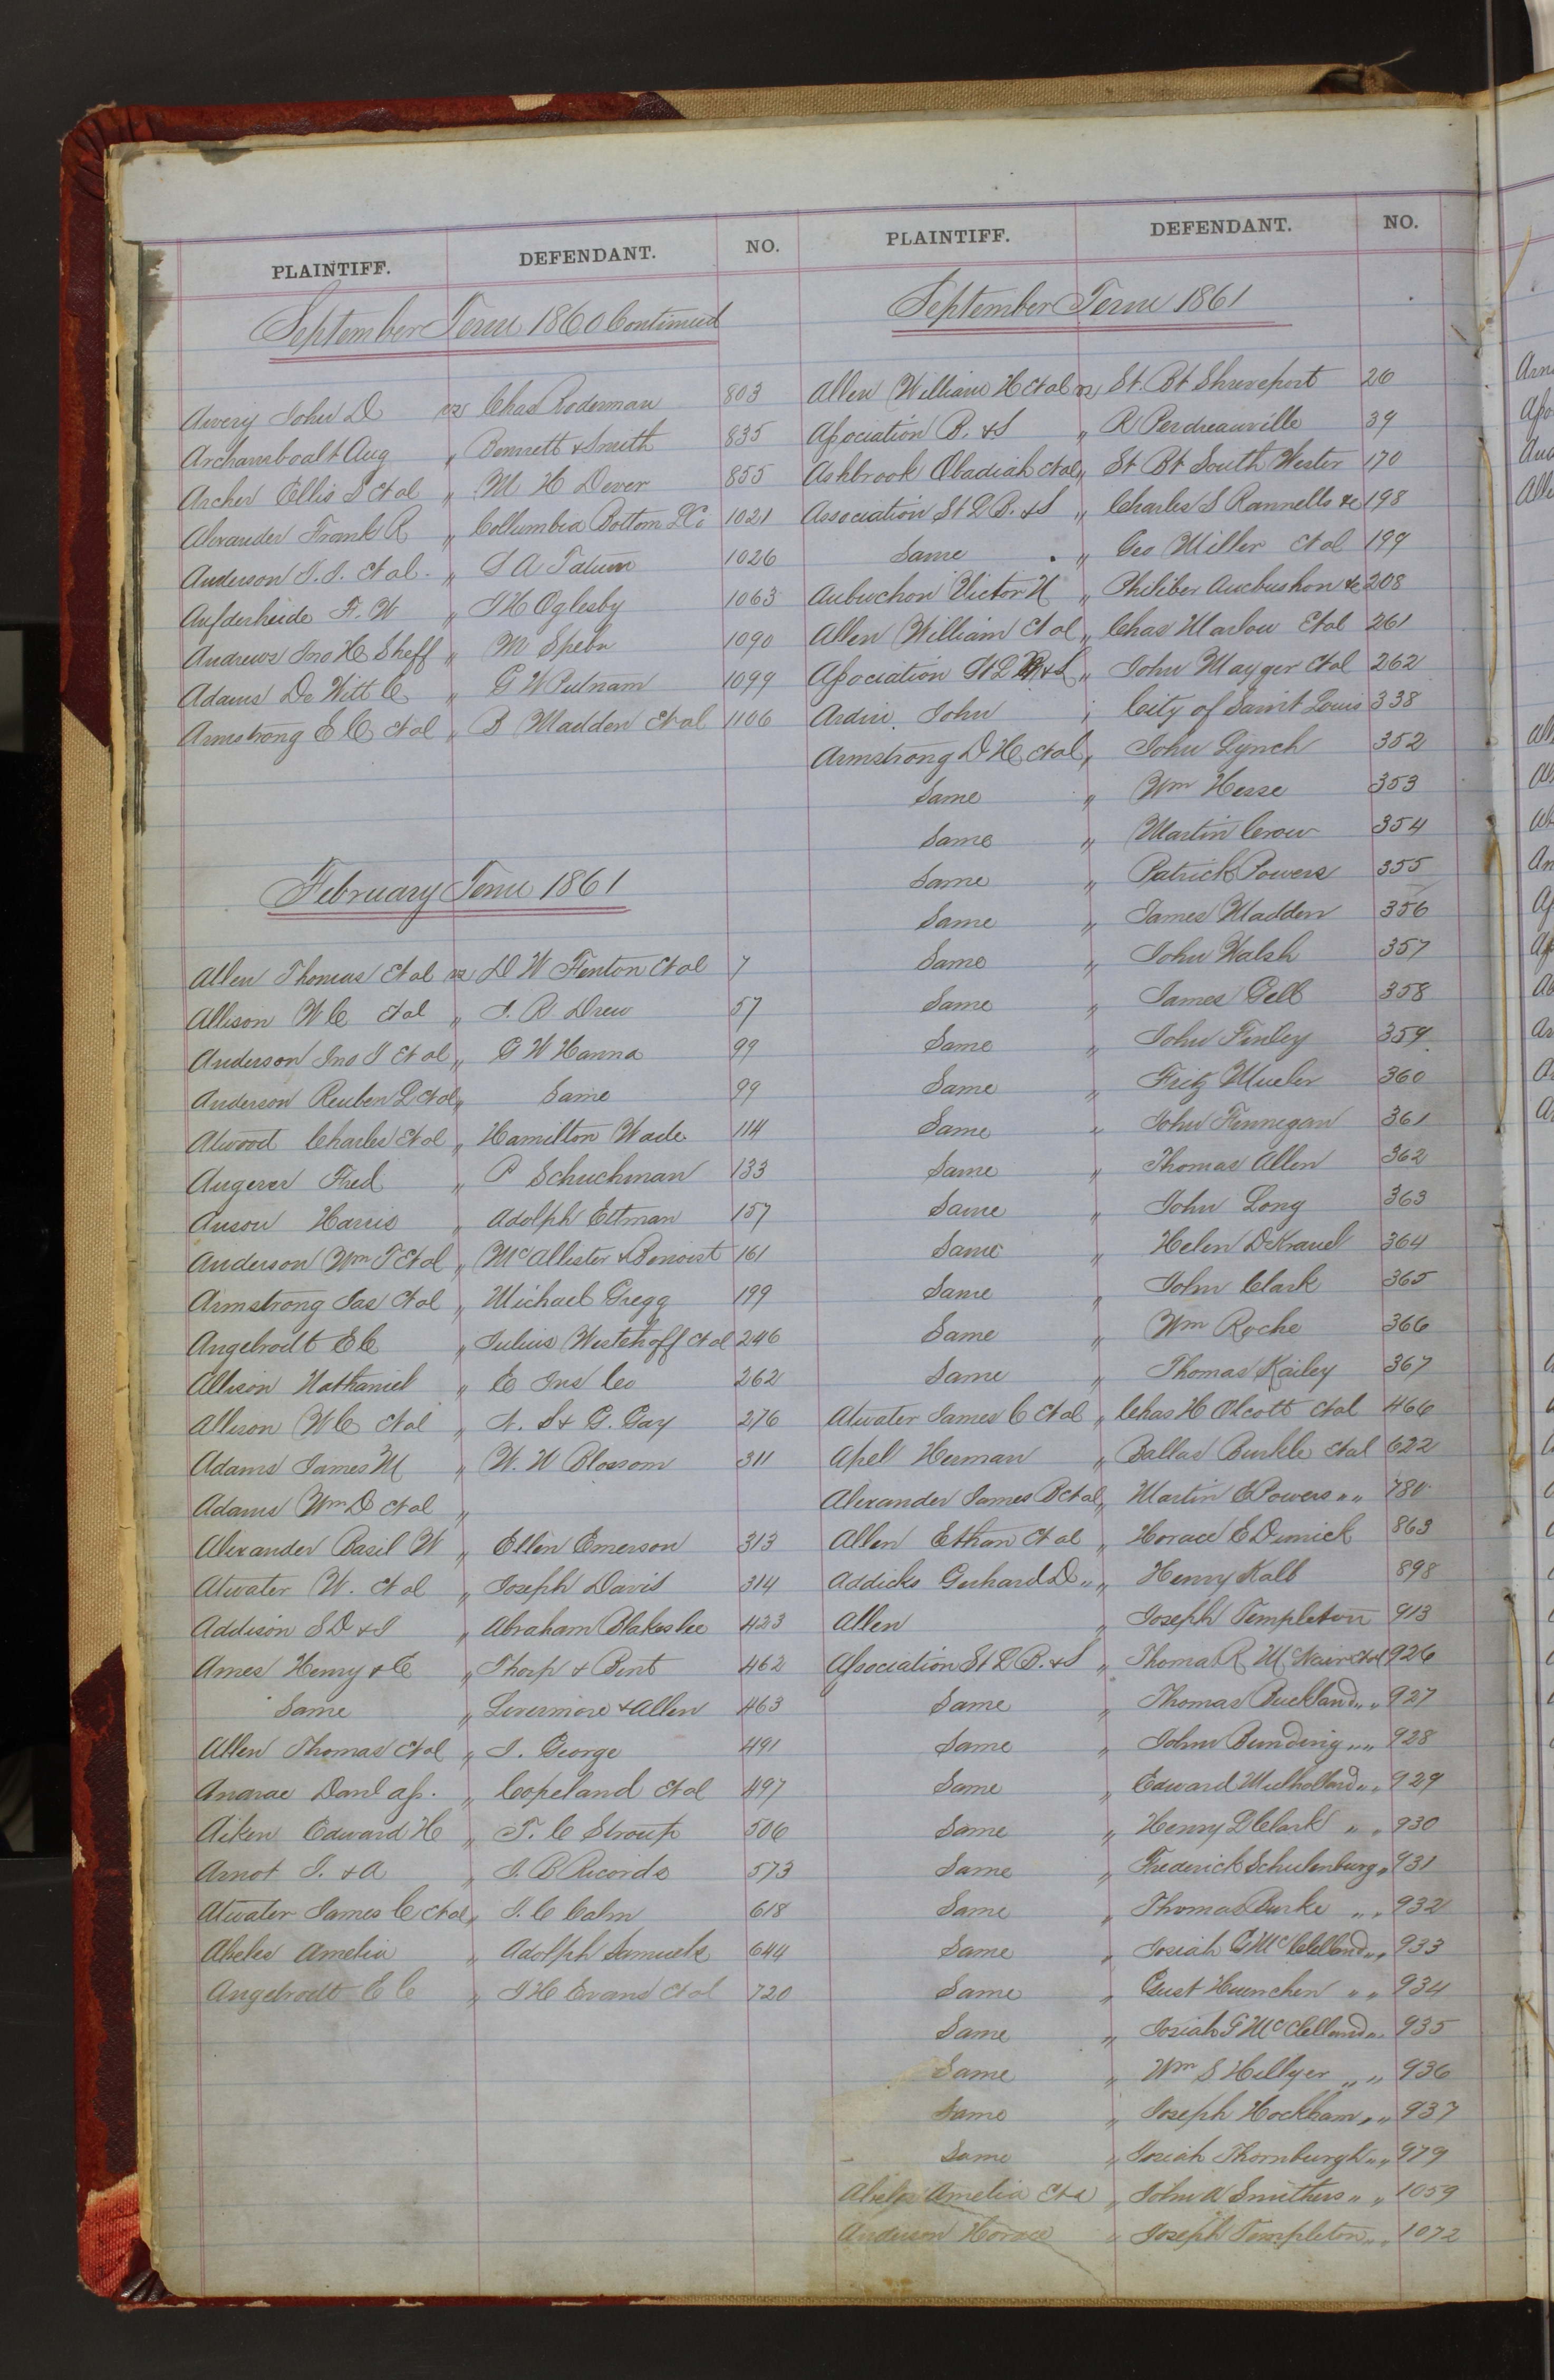 PLAINTIFF. DEFENDANT. NO.
September Term 1860 Continued
Avery John D vs Chas Roderman 803
Archamboalt Aug " Bennett & Smith 835
Archer Ellis S et al " M H Dever 855
Alexander Frank R " Collumbia Bottom L Co 1021
Anderson J. J. et al. " S A Tatum 1026
Aufderheide F. W " J H Oglesby 1063
Andrews Jno H Sheff " M 1090
Adams De Witt C " G W Putnam 1099
Armstrong E C et al " B Madden et al 1106
February Term 1861
Allen Thomas et al vs D W Fenton et al 7
Allison W C et al " J. R. Drew 57
Anderson Jno J et al " G W Hanna 99
Anderson Reuben L et al " Same 99
Atwood Charles et al " Hamilton Wade 114
Angerer Fred " P Schuchman 133
Anson Harris " Adolph Eltman 157
Anderson Wm T et al " McAllister & Benoist 161
Armstrong Jas et al " Michael Gregg 199
Angelrodt E C " Julius Westehoff et al 246
Allison Nathaniel " E Ins Co 262
Allison W C et al " A. S & G. Gay 276
Adams James M " W. W Blossom 311
Adams Wm D et al "
Alexander Basil W " Ellen Emerson 313
Atwater W. et al " Joseph Davis 314
Addison S D & J " Abraham Blakeslee 423
Ames Henry & C " Thorp & Bent 462
Same " Livermore & Allen 463
Allen Thomas et al " J. George 491
Danl aſs. " Copeland et al 497
Aiken Edward H " T. C Stroup 506
Arnot J. & A " J. B Records 573
Atwater James C et al " J. C Calm 618
Abeles Amelia " Adolph Samuels 644
Angelrodt E C " J H Evans et al 720
PLAINTIFF. DEFENDANT. NO.
September Term 1861
Allen William H et al vs St. Bt Shreveport 26
Aſsociation B. & S " R Perdreauville 39
Ashbrook Obadiah et al " St Bt South Wester 170
Association St L B. & S " Charles S Rannells &c 198
Same " Geo Miller et al 199
Aubuchon Victor N " Philiber Aucbushon &c 208
Allen William et al " Chas Marlow et al 261
Aſsociation St L B & S " John Mayger et al 262
Ardin John " City of Saint Louis 338
Armstrong D H et al " John Lynch 352
Same " Wm Hesse 353
Same " Martin Crow 354
Same " Patrick Powers 355
Same " James Madden 356
Same " John Walsh 357
Same " James Gell 358
Same " John Finley 359
Same " Fritz Mueler 360
Same " John Finnegan 361
Same " Thomas Allen 362
Same " John Long 363
Same " Helen D Krauel 364
Same " John Clark 365
Same " Wm Roche 366
Same " Thomas Kailey 367
Atwater James C et al " Chas H Olcott et al 466
Apel Herman " Ballas Burkle et al 622
Alexander James B et al " Martin E Powers " " 780
Allen Ethan et al " Horace E Dimick 863
Addicks Gerhard D " " " Henry Kalb 898
Allen " Joseph Templeton 913
Aſsociation St L B. & S " Thomas R McNair et al 926
Same " Thomas Buckland " " 927
Same " John Bunding " " 928
Same " Edward Mulholland " " 929
Same " Henry L Clark " " 930
Same " Frederick Schulenburg " 931
Same " Thomas Burke " " 932
Same " Josiah G McClelland " " 933
Same " Gust Huenchen " " 934
Same " Josiah G McClelland " " 935
Same " Wm S Hillyer " " 936
Same " Joseph Hockham " " 937
Same " Josiah Thornburgh " " 979
Abeles Amelia et a " John A Smithers " " 1059
Anderson Horace " Joseph Templeton " " 1072